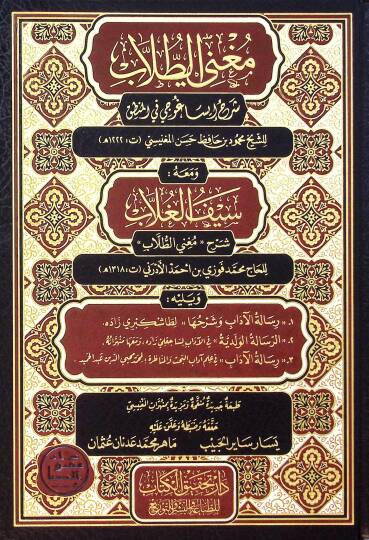 مُغْنِي الطُّلَّابِ
شَرْحُ إِيسَاغُوجِي فِي المَنْطِقِ
لِلشَّيْخِ مَحْمُود بْن حَافِظ حَسَن المَغْنِيسِي (ت: ١٢٢٢هـ)
وَمَعَهُ:
سَيْفُ الغُلَّابِ
شَرْح «مُغْنِي الطُّلَّاب»
لِلحَاج مُحَمَّد فَوْزِي بن أَحْمَد الأَدَرْنَوِي (ت: ١٣١٨هـ)
وَيَلِيْهِ:
١. «رِسَالَةُ الآدَابِ وَشَرْحُهَا» لِطَاشْكُبْرِي زَادَه.
٢. «الرِّسَالَةُ الوَلَدِيَّةُ» فِي الآدَابِ لِسَاجَقْلِي زَادَه، وَمَعَهَا مَنْهُوَّاتُهُ.
٣. «رِسَالَةُ الآدَابِ» فِي عِلْمِ آدَابِ البَحْثِ وَالمُنَاظَرَةِ، لِمُحَمَّد مُحْيِي الدِّين عَبْد الحَمِيد
طَبْعَةٌ جَدِيدَةٌ مُنَقَّحَةٌ وَمَزِيدَةٌ بِمَنْهُوَّاتِ المَغْنِيسِي
حَقَّقَهُ وَضَبَطَهُ وَعَلَّقَ عَلَيْهِ
يَسَار سَايِر الحَبِيب مَاهِر مُحَمَّد عَدْنَان عُثْمَان
دَارُ تَحْقِيقِ الكِتَابِ
لِلطِّبَاعَةِ وَالنَّشْرِ وَالتَّوْزِيعِ